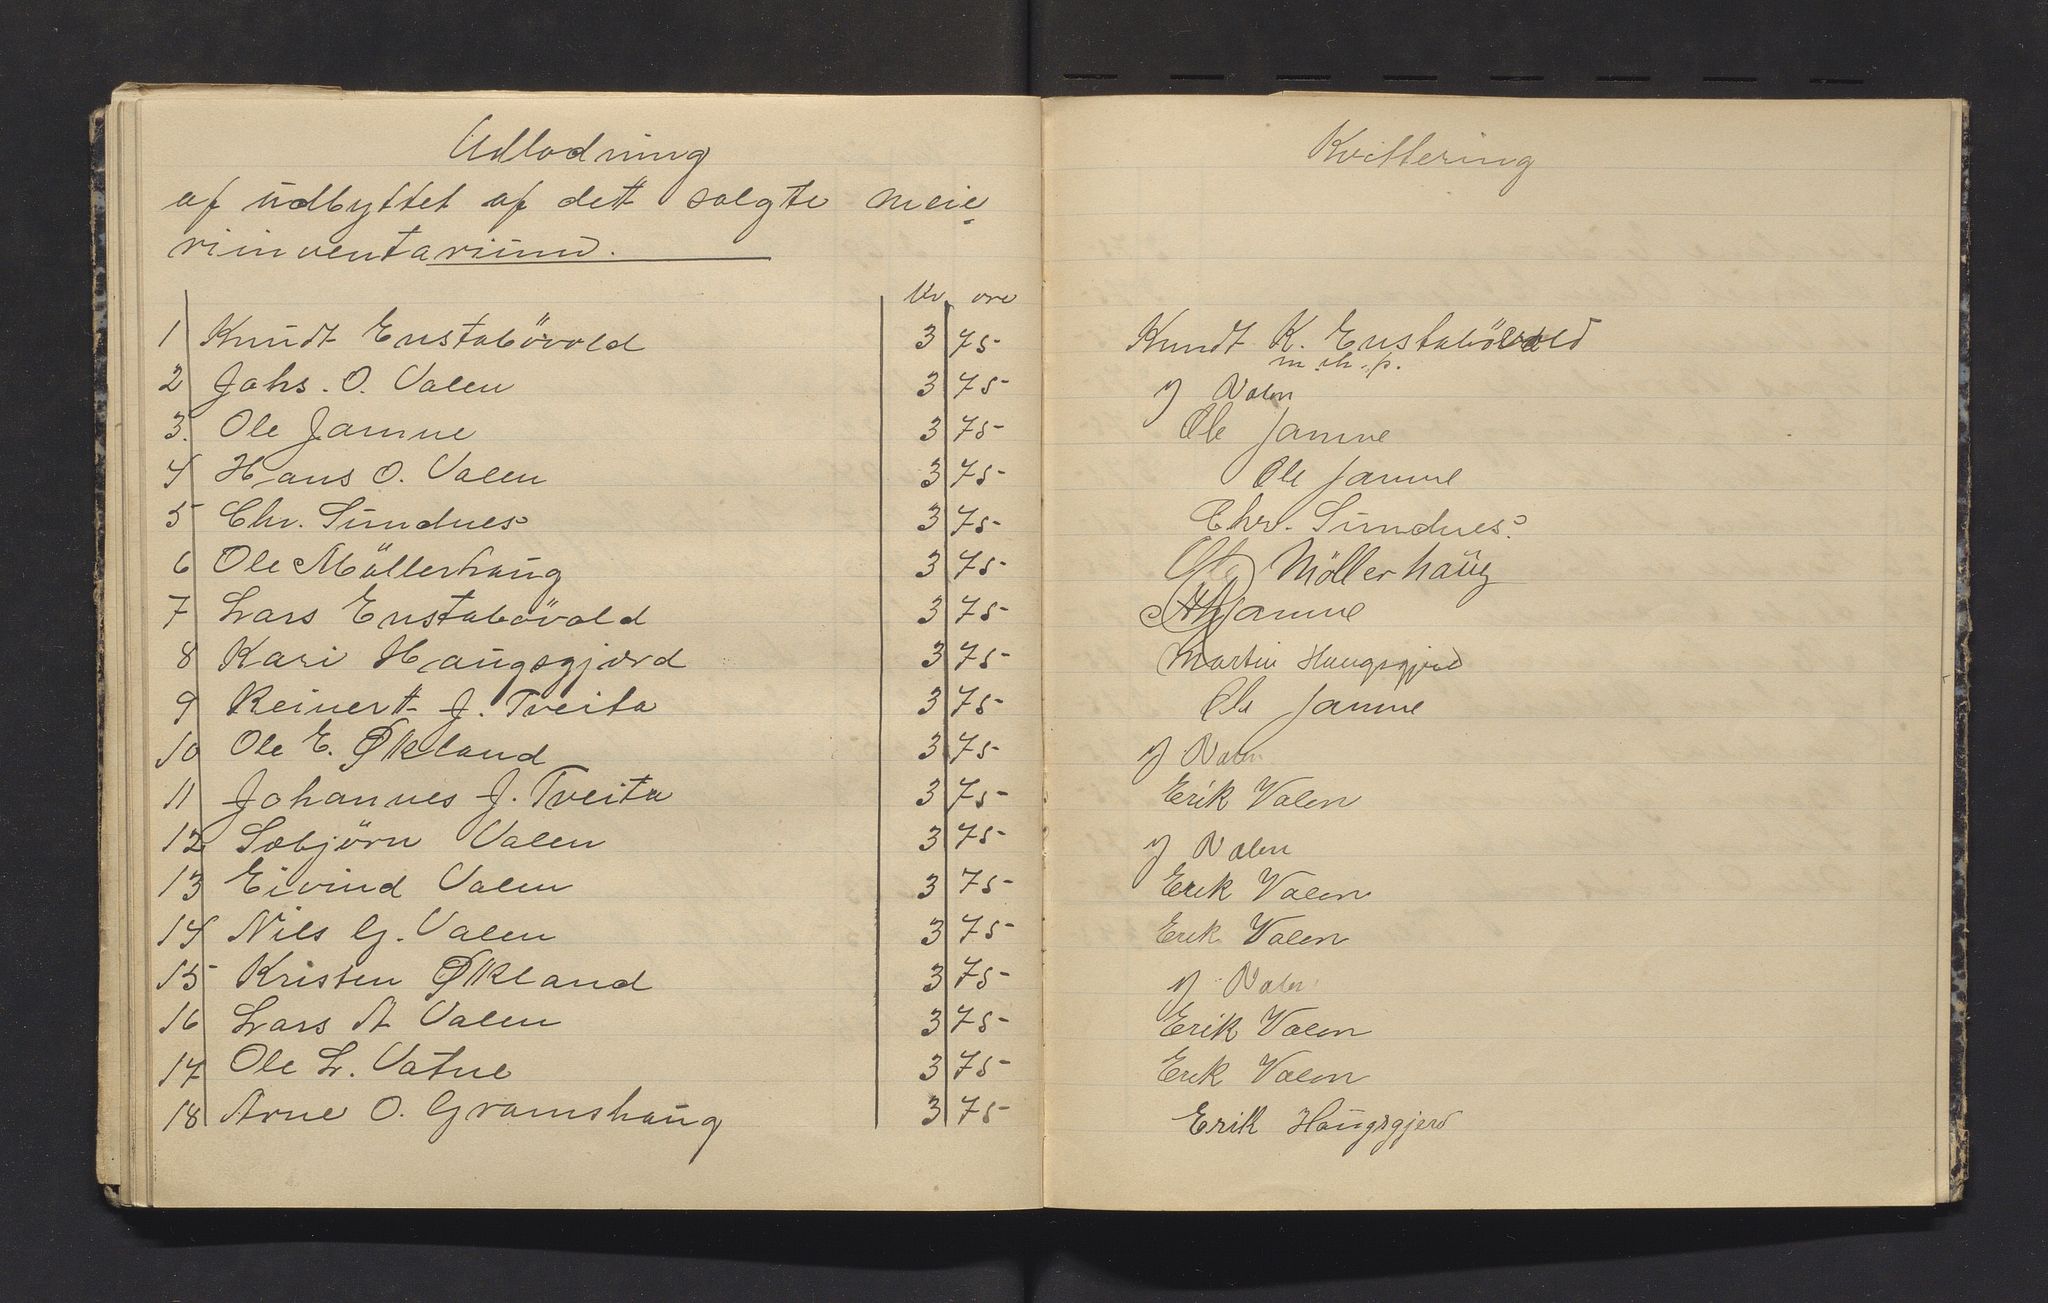 Udlodning
af udbyttet af dett solgte meie-
riinventarium.
Kr ore
1 Knudt Enstabövold 3 75
2 Johs. O. Valen 3 75
3. Ole Jamne 3 75
4 Hans O. Valen 3 75
5 Chr. Sundnes 3 75
6 Ole Möllerhaug 3 75
7 Lars Enstabövold 3 75
8 Kari Haugsgjerd 3 75
9 Reinertt J. Tveita 3 75
10 Ole E. Økland 3 75
11 Johannes J. Tveita 3 75
12 Sæbjörn Valen 3 75
13 Eivind Valen 3 75
14 Nils G. Valen 3 75
15 Kristen Økland 3 75
16 Lars A Valen 3 75
17 Ole L. Vatne 3 75
18 Arne O. Gramshaug 3 75
Kvittering
Knudt K. Enstabövold
m. ih. p.
J Valen
Ole Jamne
Ole Jamne
Chr. Sundnes.
Ole Möllerhaug
Jamne
Martin Haugsgjerd
Ole Jamne
J Valen
Erik Valen
J Valen
Erik Valen
Erik Valen
J Valen
Erik Valen
Erik Valen
Erik Haugsgjerd